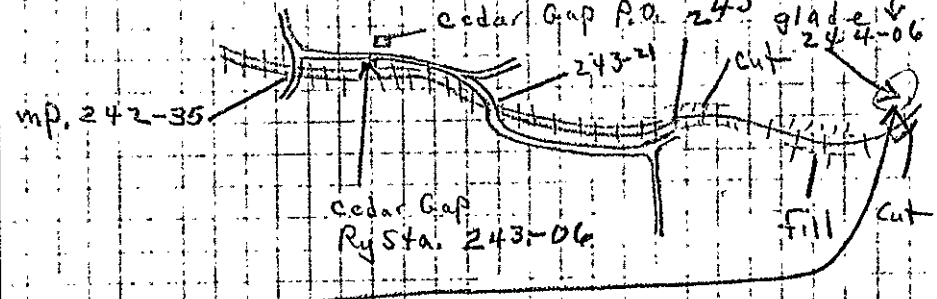 cedar Gap P.O.
glade ↓
244-06
243-21
cut
mp. 242-35
cedar Gap
Ry Sta. 243-06
fill
cut